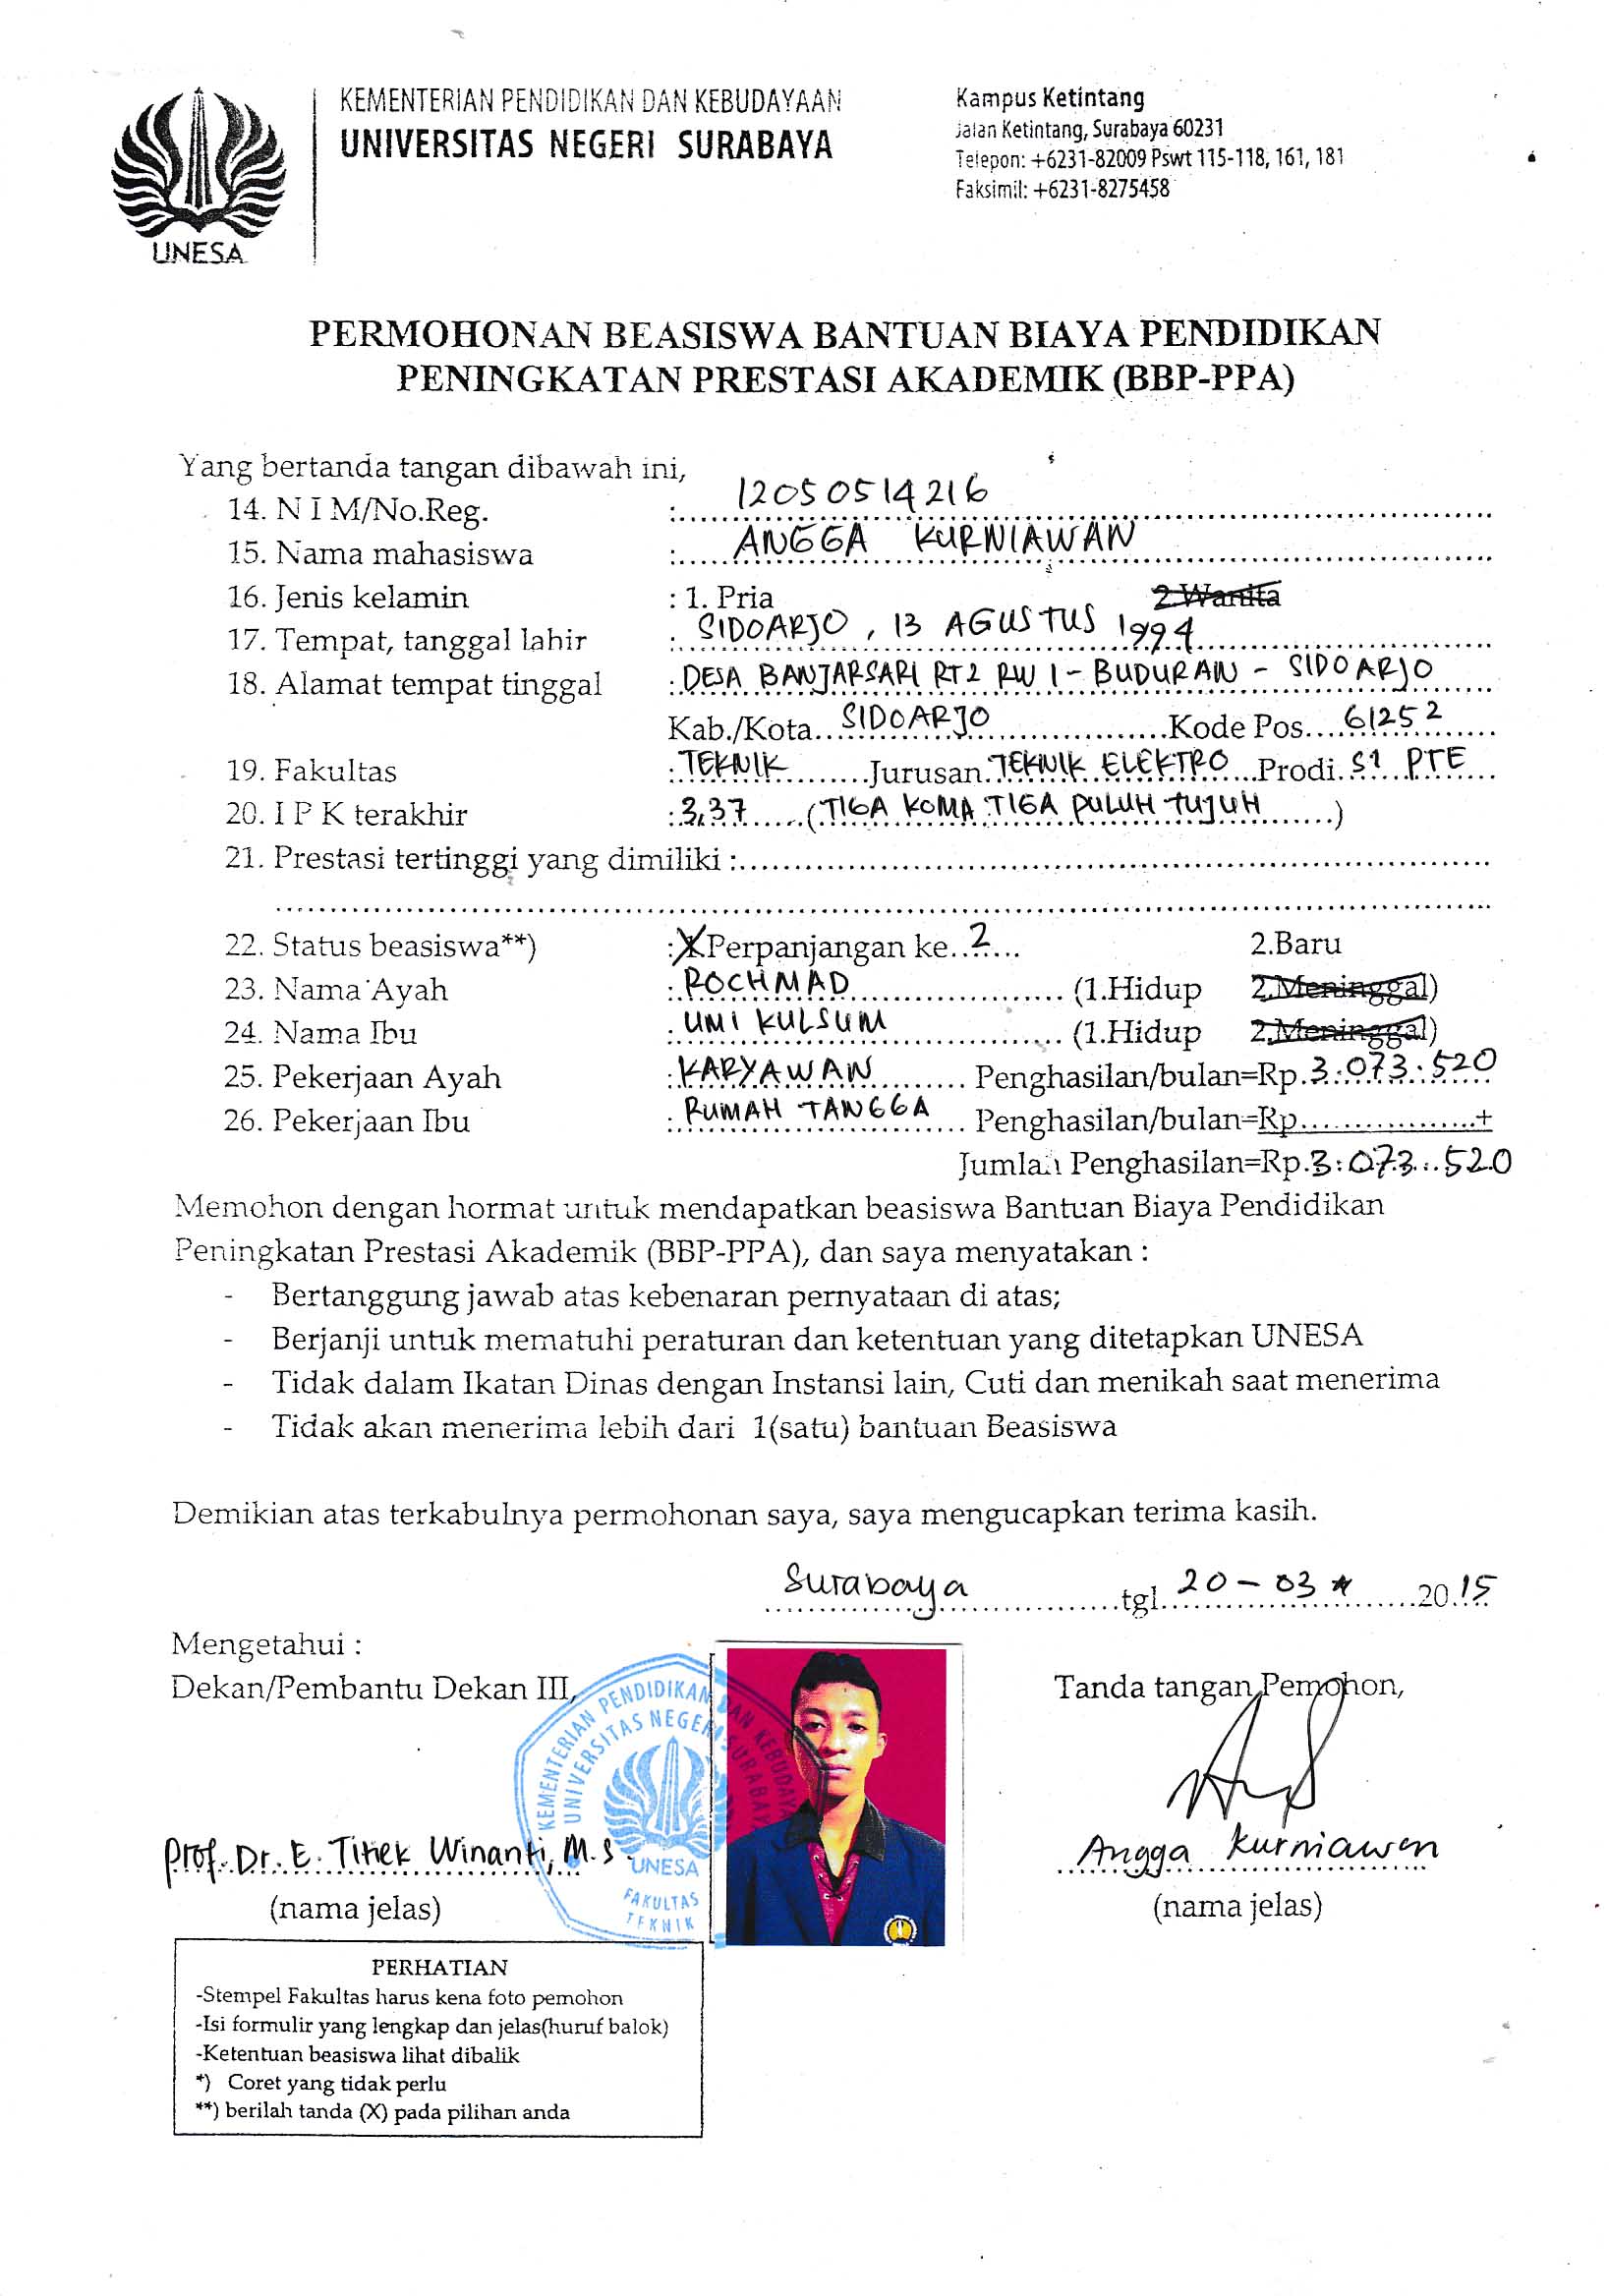 KEMENTERIAN PENDIDIKAN DAN KEBUDAYAAN
UNIVERSITAS NEGERI SURABAYA
UNESA
Kampus Ketintang
Jalan Ketintang, Surabaya 60231
Telepon: +6231-82009 Pswt 115-118, 161, 181
Faksimil: +6231-8275458
PERMOHONAN BEASISWA BANTUAN BIAYA PENDIDIKAN
PENINGKATAN PRESTASI AKADEMIK (BBP-PPA)
Yang bertanda tangan dibawah ini,
14. N I M/No.Reg. : 12050514216
15. Nama mahasiswa : ANGGA KURNIAWAN
16. Jenis kelamin : 1. Pria 2.Wanita
17. Tempat, tanggal lahir : SIDOARJO, 13 AGUSTUS 1994
18. Alamat tempat tinggal : DESA BANJARSARI RT2 RW 1 - BUDURAN - SIDOARJO
Kab./Kota SIDOARJO Kode Pos 61252
19. Fakultas : TEKNIK Jurusan TEKNIK ELEKTRO Prodi S1 PTE
20. I P K terakhir : 3,37 (TIGA KOMA TIGA PULUH TUJUH)
21. Prestasi tertinggi yang dimiliki :
22. Status beasiswa**) : X Perpanjangan ke 2 2.Baru
23. Nama Ayah : ROCHMAD (1.Hidup 2.Meninggal)
24. Nama Ibu : UMI KULSUM (1.Hidup 2.Meninggal)
25. Pekerjaan Ayah : KARYAWAN Penghasilan/bulan=Rp. 3.073.520
26. Pekerjaan Ibu : RUMAH TANGGA Penghasilan/bulan=Rp +
Jumlah Penghasilan=Rp. 3.073.520
Memohon dengan hormat untuk mendapatkan beasiswa Bantuan Biaya Pendidikan
Peningkatan Prestasi Akademik (BBP-PPA), dan saya menyatakan :
- Bertanggung jawab atas kebenaran pernyataan di atas;
- Berjanji untuk mematuhi peraturan dan ketentuan yang ditetapkan UNESA
- Tidak dalam Ikatan Dinas dengan Instansi lain, Cuti dan menikah saat menerima
- Tidak akan menerima lebih dari 1(satu) bantuan Beasiswa
Demikian atas terkabulnya permohonan saya, saya mengucapkan terima kasih.
Surabaya tgl. 20 - 03 2015
Mengetahui :
Dekan/Pembantu Dekan III,
Tanda tangan Pemohon,
KEMENTERIAN PENDIDIKAN DAN KEBUDAYAAN
UNIVERSITAS NEGERI SURABAYA
UNESA
FAKULTAS
TEKNIK
Prof. Dr. E. Titiek Winanti, M.S.
Angga Kurniawan
(nama jelas)
(nama jelas)
PERHATIAN
-Stempel Fakultas harus kena foto pemohon
-Isi formulir yang lengkap dan jelas(huruf balok)
-Ketentuan beasiswa lihat dibalik
*) Coret yang tidak perlu
**) berilah tanda (X) pada pilihan anda